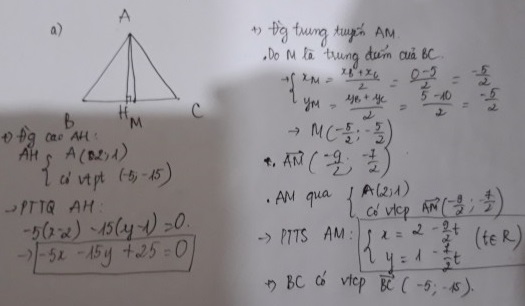 a)
A
B
H
M
C
+) Đg cao AH:
AH { A(2;1)
có vtpt (-5;-15)
→ PTTQ AH:
-5(x-2) -15(y-1) = 0.
→ -5x - 15y + 25 = 0
+) Đg trung tuyến AM
. Do M là trung điểm của BC.
→ { x_M = (x_B + x_C)/2 = (0-5)/2 = -5/2
y_M = (y_B + y_C)/2 = (5-10)/2 = -5/2
→ M(-5/2; -5/2)
AM→ (-9/2; -7/2)
. AM qua { A(2;1)
có vtcp AM→ (-9/2; -7/2)
→ PTTS AM: { x = 2 - 9/2 t
y = 1 - 7/2 t (t∈R)
+) BC có vtcp BC→ (-5; -15).